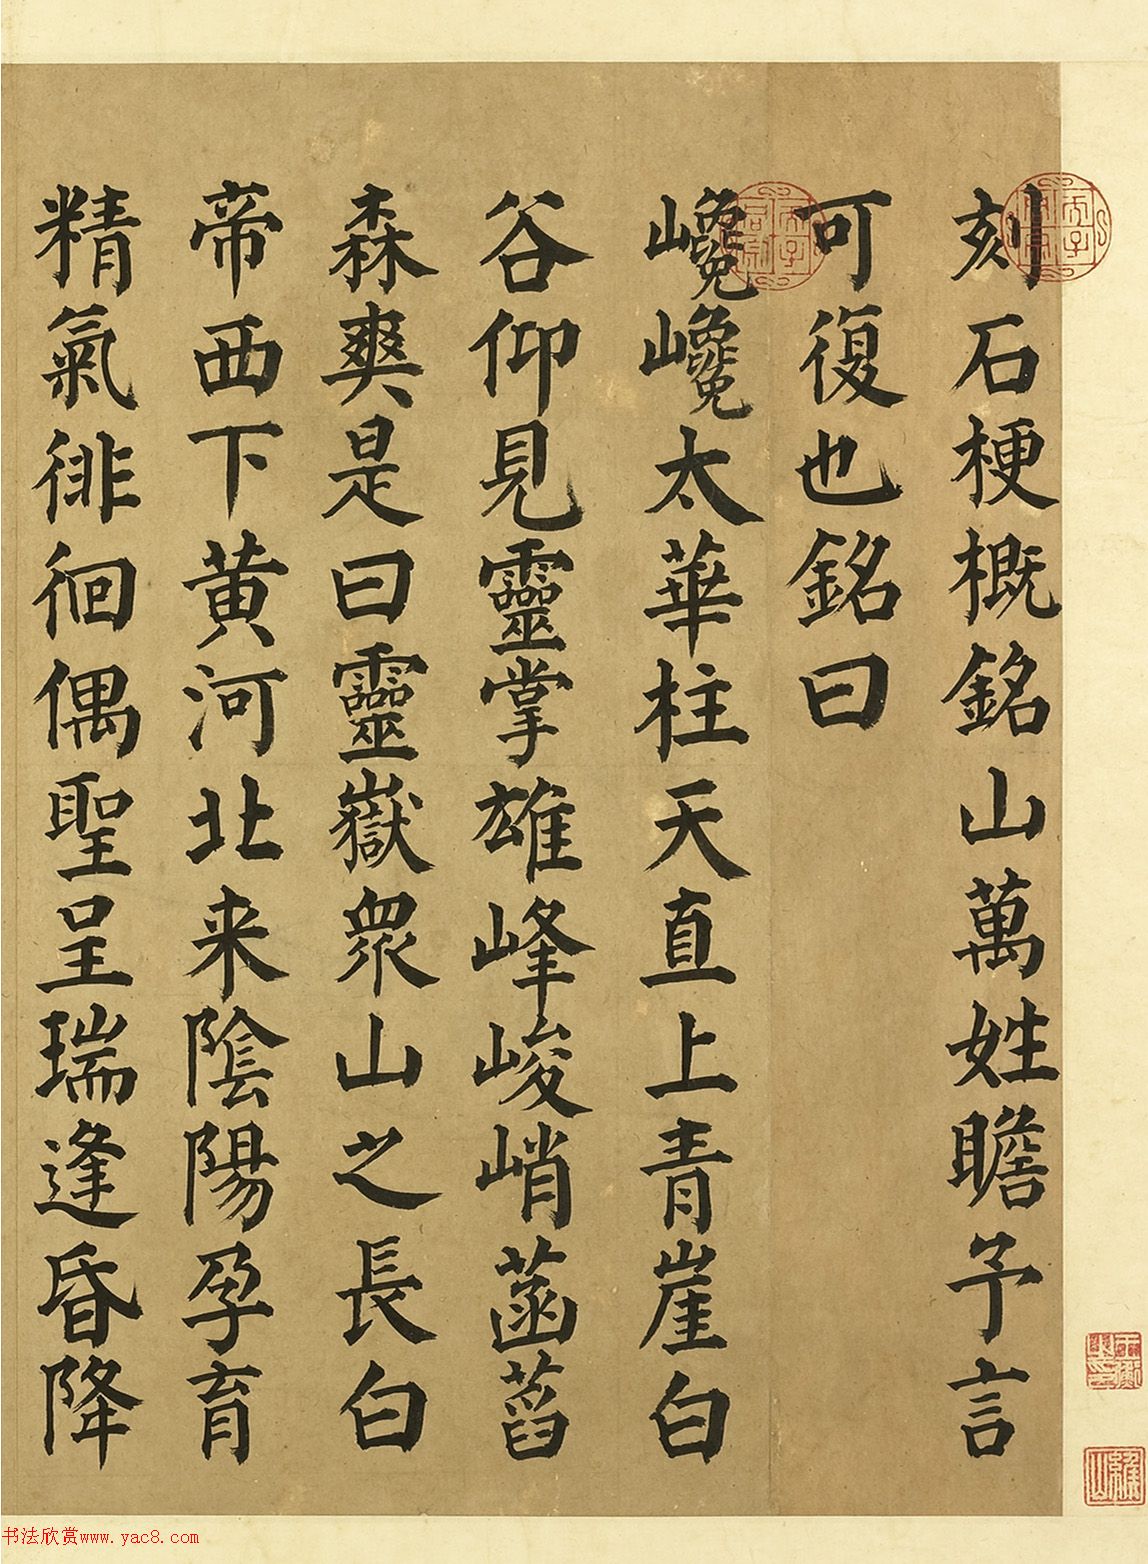 刻石梗概銘山萬姓瞻予言
可復也銘曰
巉巉太華柱天直上青崖白
谷仰見靈掌雄峰峻峭菡萏
森爽是曰靈嶽衆山之長白
帝西下黄河北来陰陽孕育
精氣徘徊偶聖呈瑞逢昏降
书法欣赏www.yac8.com